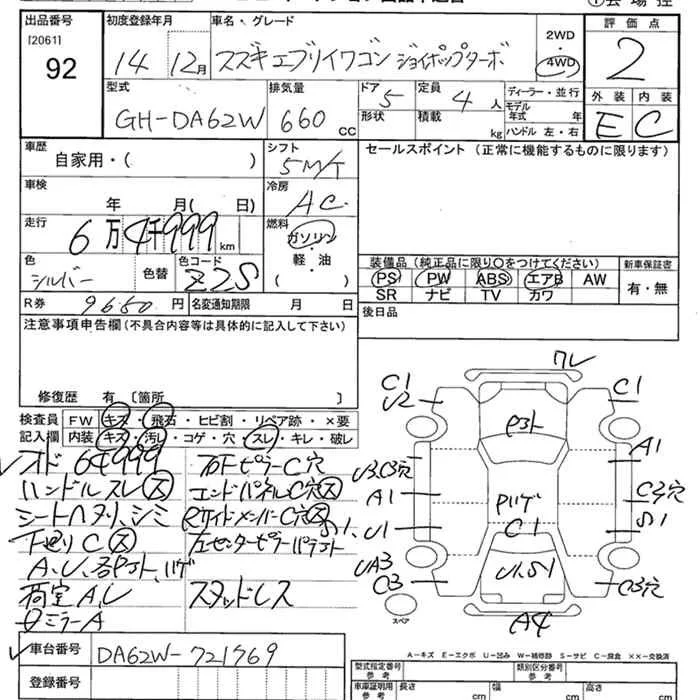 出品番号
[2061]
92
初度登録年月
14年 12月
車名・グレード
スズキ エブリイワゴン ジョイポップターボ
2WD
・
4WD
評価点
2
型式
GH-DA62W
排気量
660 cc
ドア 5
形状
定員 4 人
積載 kg
ディーラー・並行
モデル年式 年
ハンドル 左・右
外装 内装
E C
車歴
自家用・( )
シフト
5M/T
セールスポイント (正常に機能するものに限ります)
車検
年 月( 日)
冷房
AC
走行
6万4千999km
燃料
ガソリン
軽・油
( )
色
シルバー
色替
色コード
Z2S
装備品(純正品に限り○をつけてください)
PS PW ABS エアB AW
SR ナビ TV カワ
新車保証書
有・無
R券 9650円
名変通知期限 月 日
後日品
注意事項申告欄(不具合内容等は具体的に記入して下さい)
修復歴 有〔箇所 〕
検査員記入欄
FW キズ・飛石・ヒビ割・リペア跡・×要
内装 キズ・汚レ・コゲ・穴・スレ・キレ・破レ
64999
右Fピラー C穴
ハンドルスレ
エンドパネル C穴
シートヘタリ、シミ
Rサイドメンバー C穴
下廻り C
左センターピラー
A、U、
荷室 A、U
スタッドレス
ミラーA
車台番号 DA62W-721969
登録番号
ワレ
C1
U2
C1
A1
U3、C3穴
A1
U1
C3穴
S1
S1
Pハゲ
C1
UA3
C3
U1、S1
C3穴
A4
スペア
A-キズ E-エクボ U-凹み W-補修跡 S-サビ C-腐食 ××-交換済
型式指定番号
参考
類別区分番号
参考
車庫証明用
参考
長さ cm
幅 cm
高さ cm